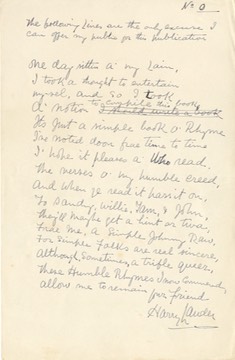 No 0
The following lines are the only excuse I
can offer my public for this publication
One day sittin a' my lain,
I took a thought to entertain
mysel, and so I took
to compile this book
a notion I should write a book
Its just a simple book o Rhyme
I've noted doon frae time to time
I hope it pleases a' who read,
The verses o' my humble creed,
And when ye read it pass it on,
To Sandy, Willie, Tam, & John,
they'll maybe get a hint or twa,
Frae me, a simple Johnny Raw,
For Simple folks are real sincere,
Although, sometimes, a trifle queer,
These Humble Rhymes I now commend,
allow me to remain your friend
Harry Lauder